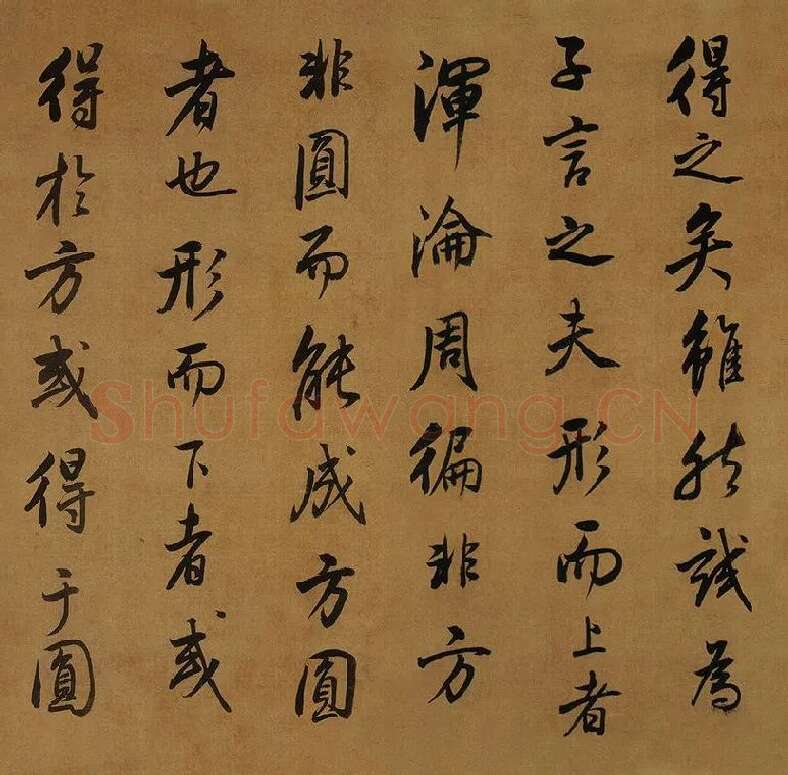 得之矣雖然試為
子言之夫形而上者
渾淪周徧非方
非圓而能成方圓
者也形而下者或
得於方或得于圓
Shufawang.CN